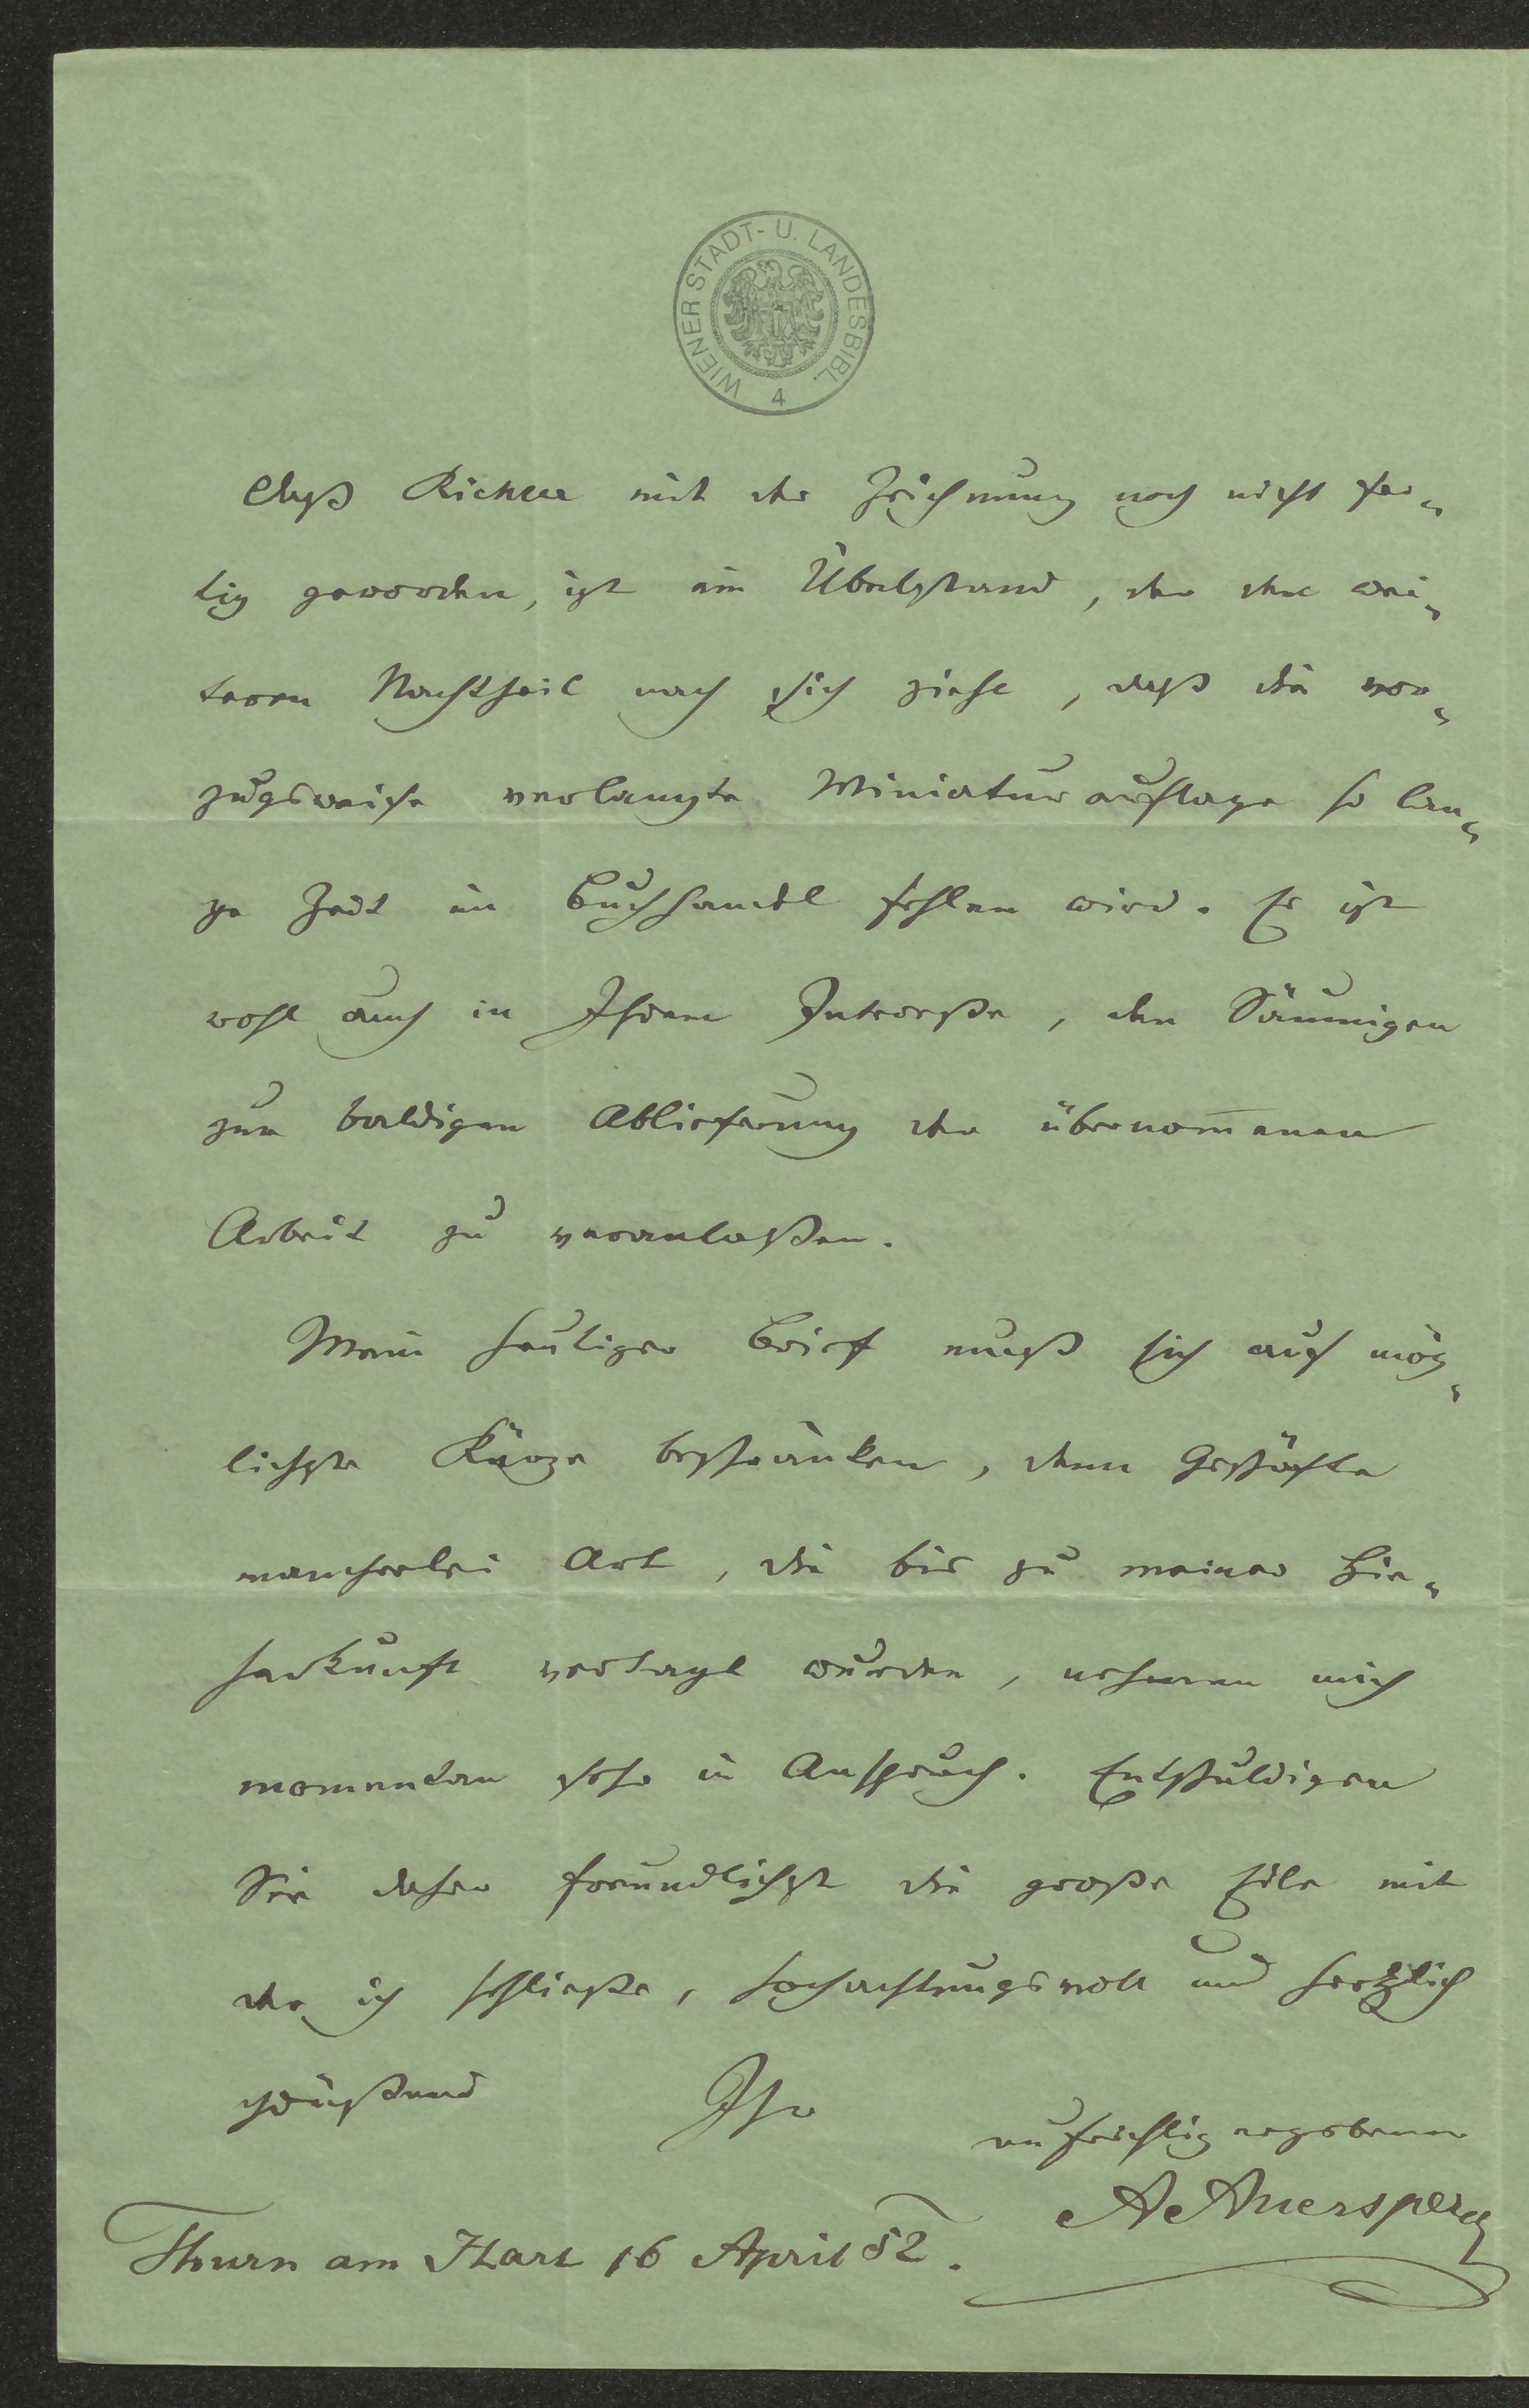 WIENER STADT- U. LANDESBIBL. 4
Daß Richter mit der Zeichnung noch nicht fer-
tig geworden, ist ein Übelstand, der den wei-
teren Nachtheil nach sich zieht, daß die vor-
zugsweise verlangte Miniaturauflage so lan-
ge Zeit im Buchhandel fehlen wird. Es ist
wohl auch in Ihrem Interesse, den Säumigen
zur baldigen Ablieferung der übernom̄enen
Arbeit zu veranlaßen.
Mein heutiger Brief muß sich auf mög-
lichste Kürze beschränken, denn Geschäfte
mancherlei Art, die bis zu meiner Hie-
herkunft vertagt wurden, nehmen mich
momentan sehr in Anspruch. Entschuldigen
Sie daher freundlichst die große Eile mit
der ich schließe, hochachtungsvoll und herzlich
grüßend Ihr
aufrichtig ergebener
A Auersperg
Thurn am Hart 16 April 52.